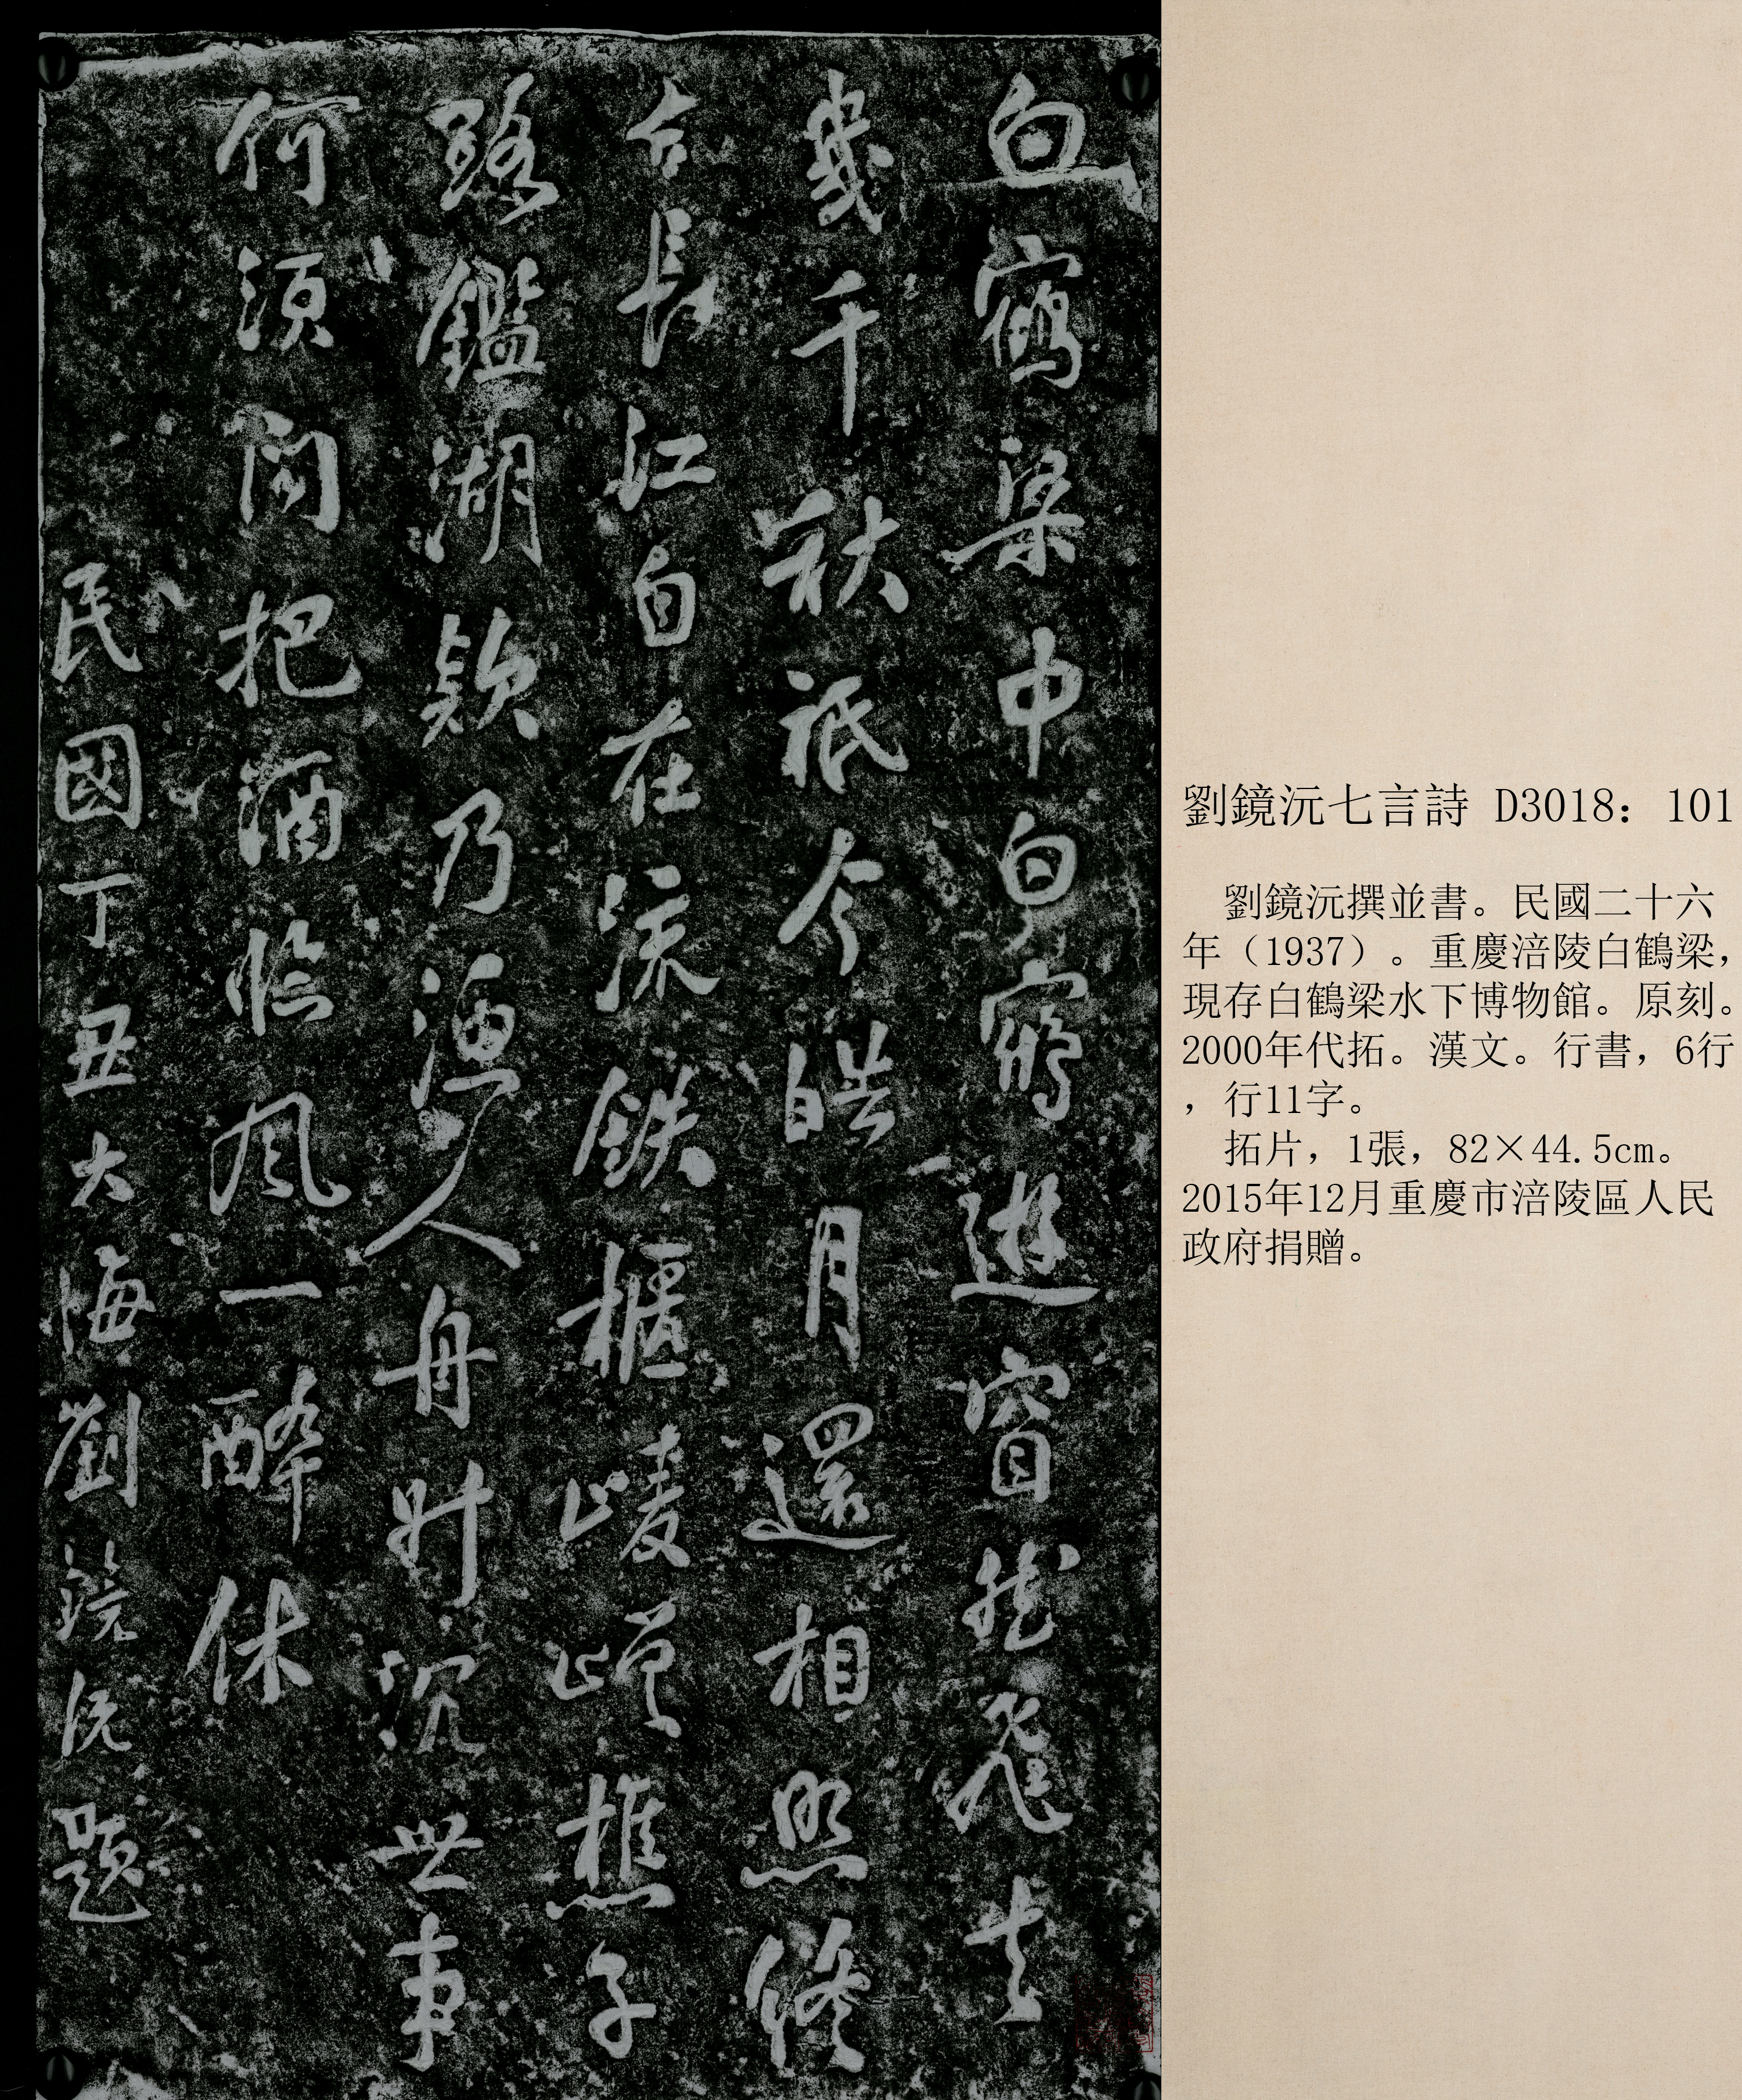 白鶴梁中白鶴遊窅然飛去
幾千秋祇今皓月還相照終
古長江自在流鉄櫃崚嶒樵子
路鑑湖欵乃漁人舟升沉世事
何須問把酒臨風一醉休
民國丁丑大悔劉鏡沅題
劉鏡沅七言詩 D3018：101
劉鏡沅撰並書。民國二十六
年（1937）。重慶涪陵白鶴梁，
現存白鶴梁水下博物館。原刻。
2000年代拓。漢文。行書，6行
，行11字。
拓片，1張，82×44.5cm。
2015年12月重慶市涪陵區人民
政府捐贈。